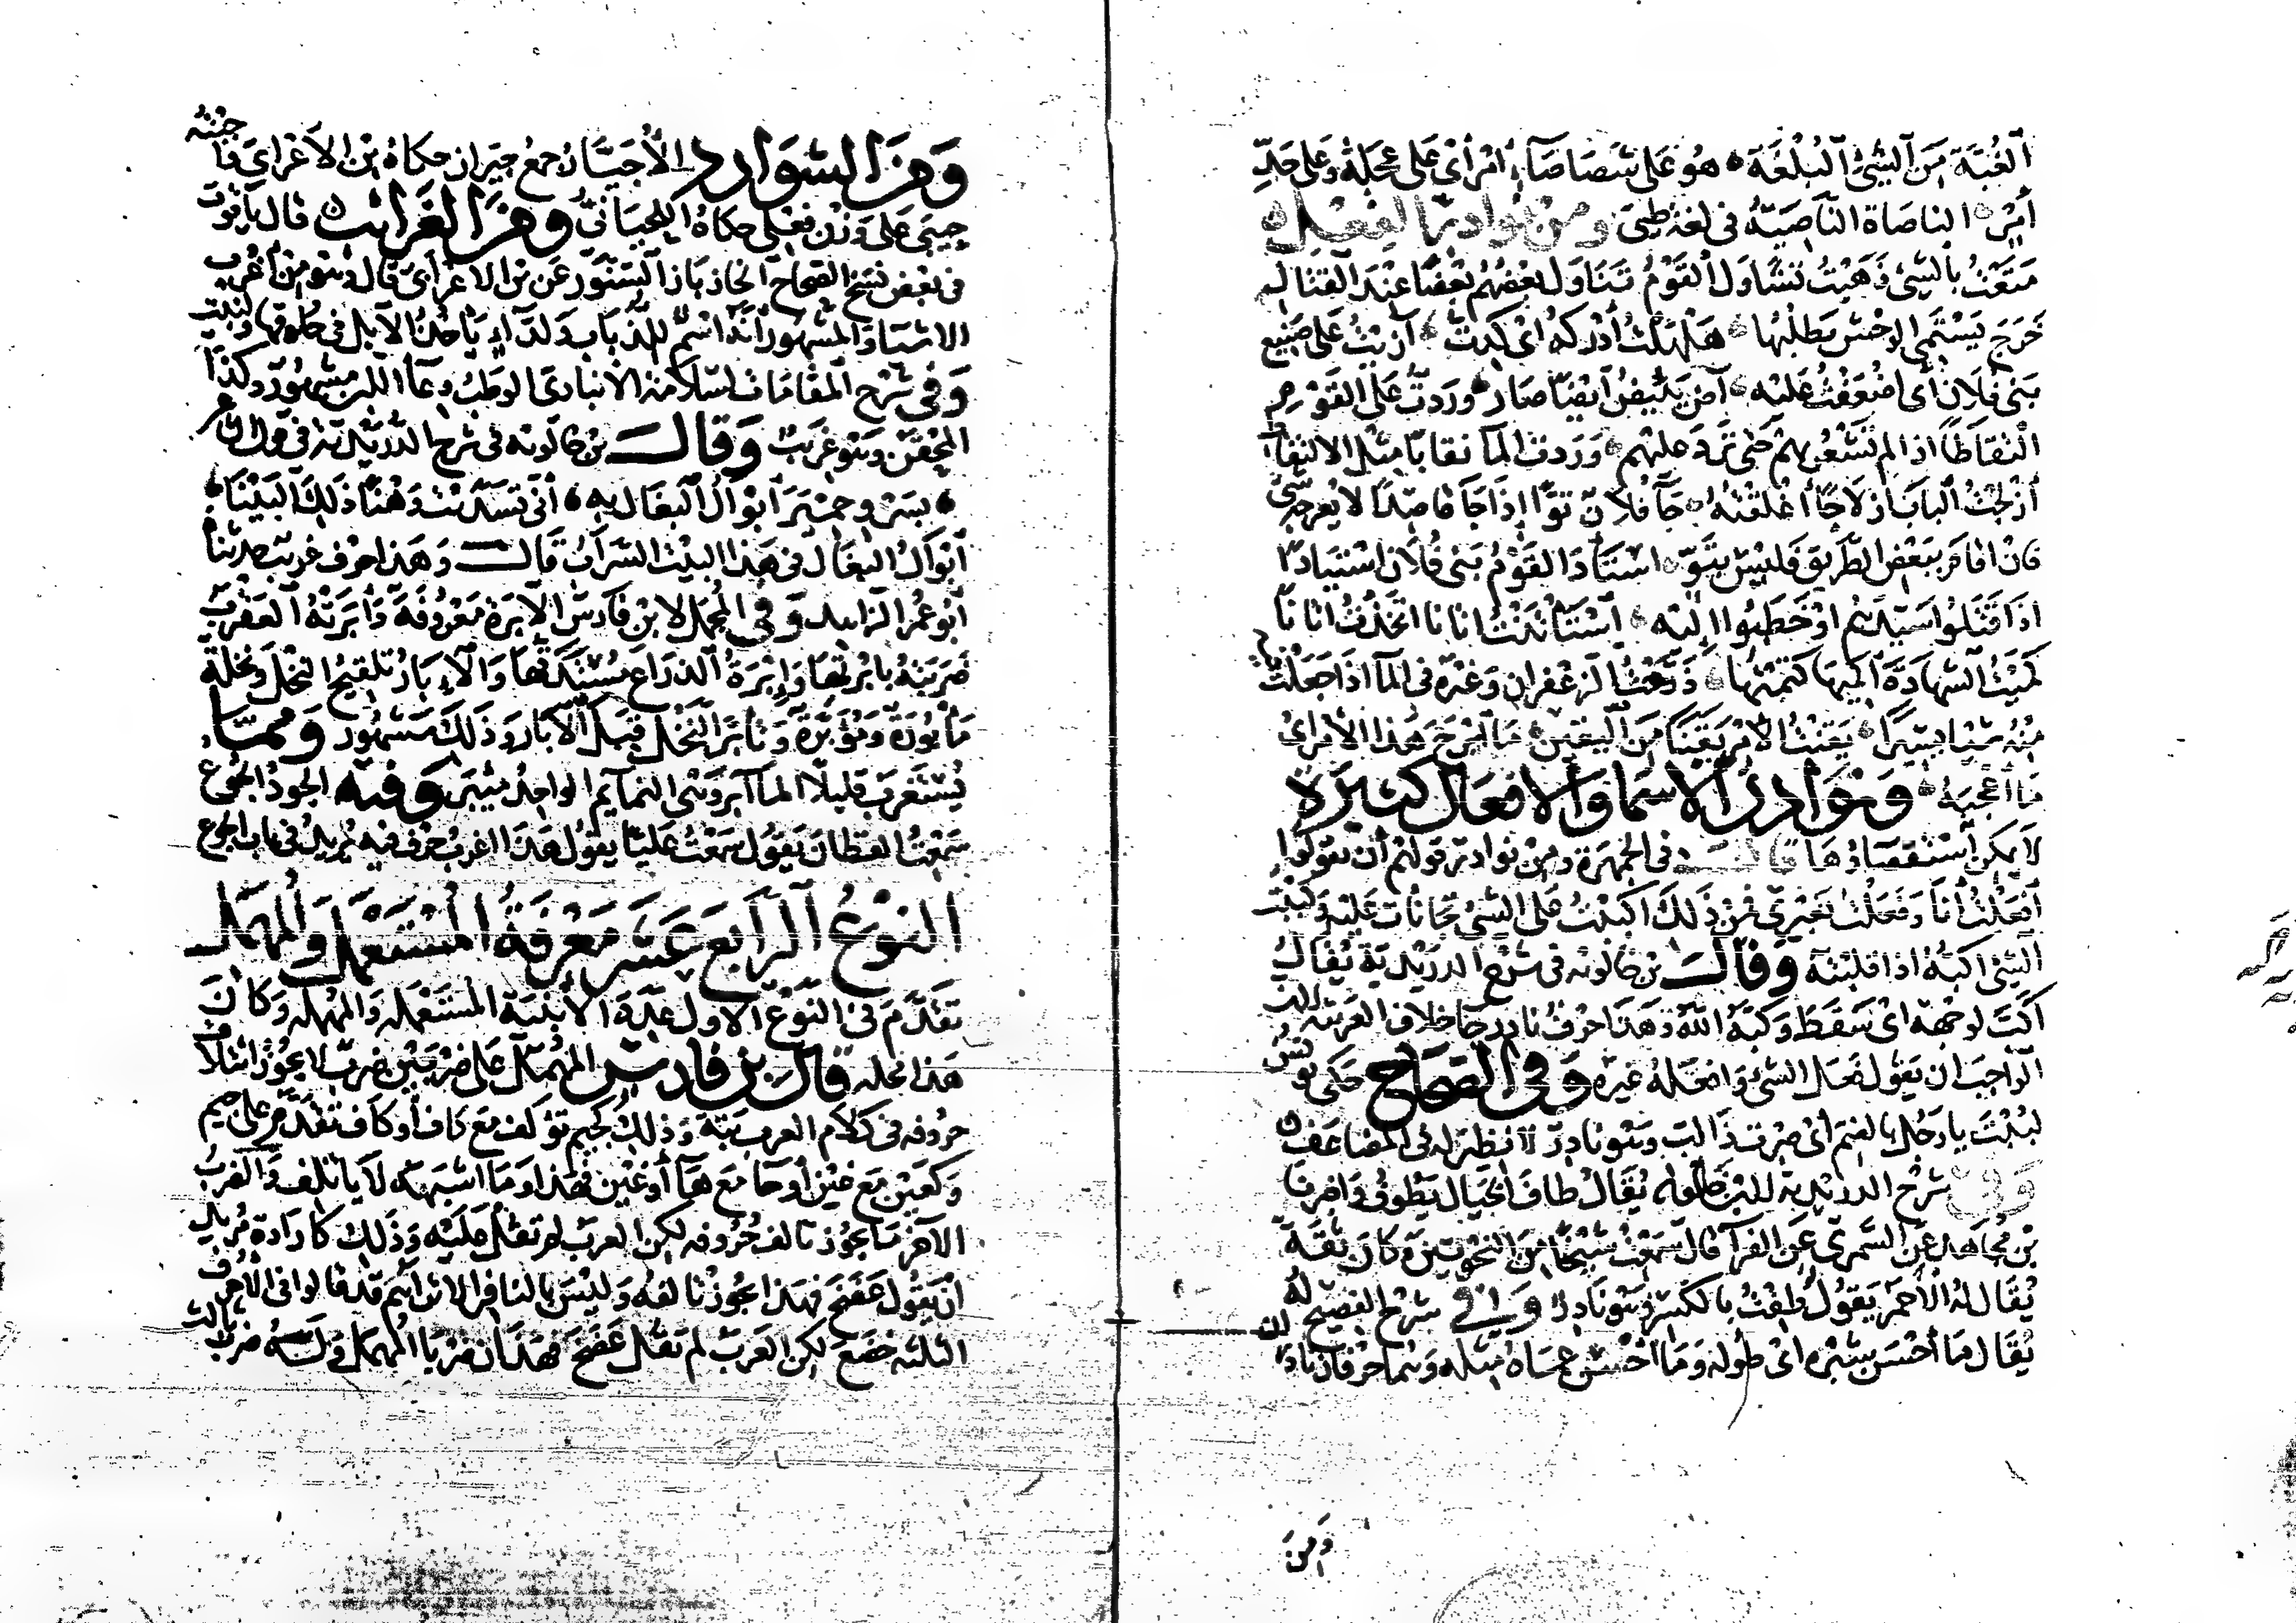 الغُبَّة مِنَ الشَّيءِ البُلْغَة هُو عَلى شَصَاصَآءِ امْرٍ اىْ عَلى عَجَلَةٍ وَعَلى حَدِّ
امْرٍ الناصَاة النَّاصِيَة فى لغة طيئ ومن نوادر الفعل
مَتَعْتُ بالشيءِ ذَهَبْتُ تَشَاوَلَ القَوْمُ تَنَاوَلَ بَعْضُهُمْ بَعْضًا عِنْدَ القِتَال
خَرَجَ يَسْتَمِى الوحْش يَطْلبُها هَلْهَلْتُ أدْركهُ اى كِدتُ آزَيْتُ على صَنِيع
بَنى فُلان أى اضْعَفْتُ عَليْه آضَ يَئيضُ أيْضًا صَارَ وَرَدتُّ عَلى القَوْم
التقاطًا اذا لم تَشْعُر بهمْ حَتى تَرِدَ عليْهم وَرَدت المآ نقابًا مِثل الالتقاط
ازْلَجْتُ البابَ ازلاجًا أغْلقتُهُ جَآ فُلانٌ تَوًّا إذَا جَآ قاصِدًا لا يُعرجه شَىْ
فان اقامَ ببَعْضِ الطَّرِيقِ فَليْسَ بِتَوٍّ اسْتَادَ القَوْمُ بَنى فُلانٍ اسْتِيَادًا
اذَا قَتَلُوا سَيِّدَهُم اوْ خَطَبُوا إليْه اسْتَأتَنْتُ اتانا اتخَذْتُ اتانًا
كَمَيْتُ الشَّهَادَةَ اكْمِيهَا كَتَمْتُها ذَوَّعْتُ الزعْفران وَغيْرَهُ فى المآ اذَا جَعَلْتَ
مِنْهُ شيْا يسِيرًا يَقِنْتُ الأمْرَ يَقَنًا مِنَ اليَقِين مَا ابْرَحَ هَذا الأمْر اىْ
مَا أعْجبَهُ وَنوَادر الاسما وَالافعَال كَثيرة
لا يمكن اسْتقصاؤهَا قالَ فى الجَمْهَرَة وَمِنْ نوادر قولهم أن يقولوا
افْعَلْتُ أنَا وَفَعَلْتُ بغَيْرى فَمِنْ ذَلكَ اكْبَبْتُ على الشىْ تجانأت عَليْه وَكبَبْت
الشَّىْ اكبُّهُ اذا قلبْتَه وَقَالَ بن خالويه فى شرْح الدُّرَيْدِيَّة يُقَالُ
اكَبَّ لوجْهِهِ اىْ سَقَطَ وَكبَّهُ اللّهُ وَهَذا حَرْفٌ نادر جا خلاف العَربيّة لان
الوَاجِبَ ان يَقُول فَعَل الشىْ وَافعَلهُ غيره وَفى الصّحَاح حَكَى يُونُس
لبُبْتَ يا رَجُل بالضم اىْ صِرتَ ذَا لبّ وهُو نادِرٌ لا نظير له فى المُضَاعَف
وَفى شرْح الدريْدية لابن خالويه يُقَالُ طَافَ الخَيَال يَطُوف وَاخبرنا
بن مُجَاهِد عَنِ السَّمَّرِى عَنِ الفَرَّآ قال سَمِعْتُ شَيْخًا مِنَ النَّحْوِيِّينَ وَكَانَ ثِقَةً
يُقَالُ لهُ الأحْمَر يَقُولُ طِفْتُ بالكَسْر وَهُو نَادِرٌ وَفى شرْح الفصِيح له
يُقَال مَا أحْسَن شِبْرَه اىْ طوله وَمَا احْسَن عَسَاه مِثله وَهُما حَرْفان نادرَان
وَمِنَ
وَمِنَ الشوَارد الأجْيَار جمْعُ جيران حكاهُ بن الاعْرابى جئته
جِيَى عَلى وَزْن فِعْلى حكاهُ اللحْيَانى وَمِنَ الغَرائب قال ياقوت
فى بَعْضِ نُسَخ الصّحَاح الخازبَاز السِّنّور عَن بن الاعْرابى قَال وَهُو مِنْ أغْرب
الاشيَا وَالمَشهُور أنّه اسْمٌ للذُّبَاب وَلدآءٍ يَأخُذُ الإبل فى حُلوقها وَلنبت
وَفى شرْح المقَامَات لسَلامة الانبارى الوَطبُ وِعَآ اللبن مشهُورٌ وكذا
المِحْقَن وَهُو غَريبٌ وَقَال بن خالويه فى شرح الدُّرَيْدِيّة فى قول الشاعر
بِسَرْو حِمْيَر أبْوَالُ البغَال بِهِ أنَّى تَسَدّيْت وَهْنًا ذَلكَ البَيْنَا
ابْوَالُ البغَال فى هَذا البيْت السَّرَابُ قَال وَهَذا حَرْف غريب حدّثنا
أبُو عُمَر الزاهد وَفى المُجْمَل لابن فَارسِ الإبْرَة مَعْرُوفَة وَأبَرَتْهُ العَقْرَبُ
ضَرَبَتْهُ بابْرتِهَا وَإبْرَةُ الذرَاع مُسْتَدَقُّهَا وَالإبَارُ تَلقِيحُ النخْل وَنخلة
مَأبُورَة وَمُؤَبَّرَة وَتَأبَّرَ النَّخْل قَبِلَ الابَارَ وَذَلكَ مَشهُور وَمِمّا
يُسْتَغرَب قليلاً المَآبِر وَهى النمَايِم الواحِدُ مِئْبَر وَفيه الجُودُ الجُوع
سَمِعْتُ القطانَ يَقُولُ سَمِعْتُ عَليًّا يَقُولُ هَذَا اغْربُ حَرْفٍ فِيه يُرِيدُ فى بَاب الجُوع
النوْعُ الرابع عَشَر مَعْرِفَةُ المُسْتَعْمَل وَالمُهْمَل
تَقَدَّمَ فى النَّوْعِ الاول عِدَّة الأبْنيَة المُسْتَعْمَله وَالمُهْمَله وَكَانَ
هَذا محله قَال بن فارس المُهْمَلُ عَلى ضرْبَيْن ضرْبٌ لا يجُوزُ ائتلافُ
حروفه فى كلام العرب بَتّةً وَذلِكَ كجِيم تؤلفُ مَعَ كاف أو كاف تقدَّمُ على جيم
وَكعَيْن مَعَ غيْن أو حَا مَعَ هَآ أو غيْن فهَذا وَمَا اشبَهَهُ لا يَاتَلِف وَالضرْبُ
الآخر مَا يجُوزُ تَالف حُرُوفه لكن العرَبَ لم تَقُلْ عَليْه وَذَلكَ كَارَادَة مُريد
أنْ يَقُول عَضَخَ فهَذا يجُوزُ تَألفهُ وَليْسَ بالنّافر الا ترَى أنهم قد قالوا فى الأحْرف
الثلثه خَضَعَ لكن العَرَبَ لم تَقُل عَضَخَ فَهَذَان ضَرْبَا المُهْمَل وَلَهُ ضرْبٌ ثالث